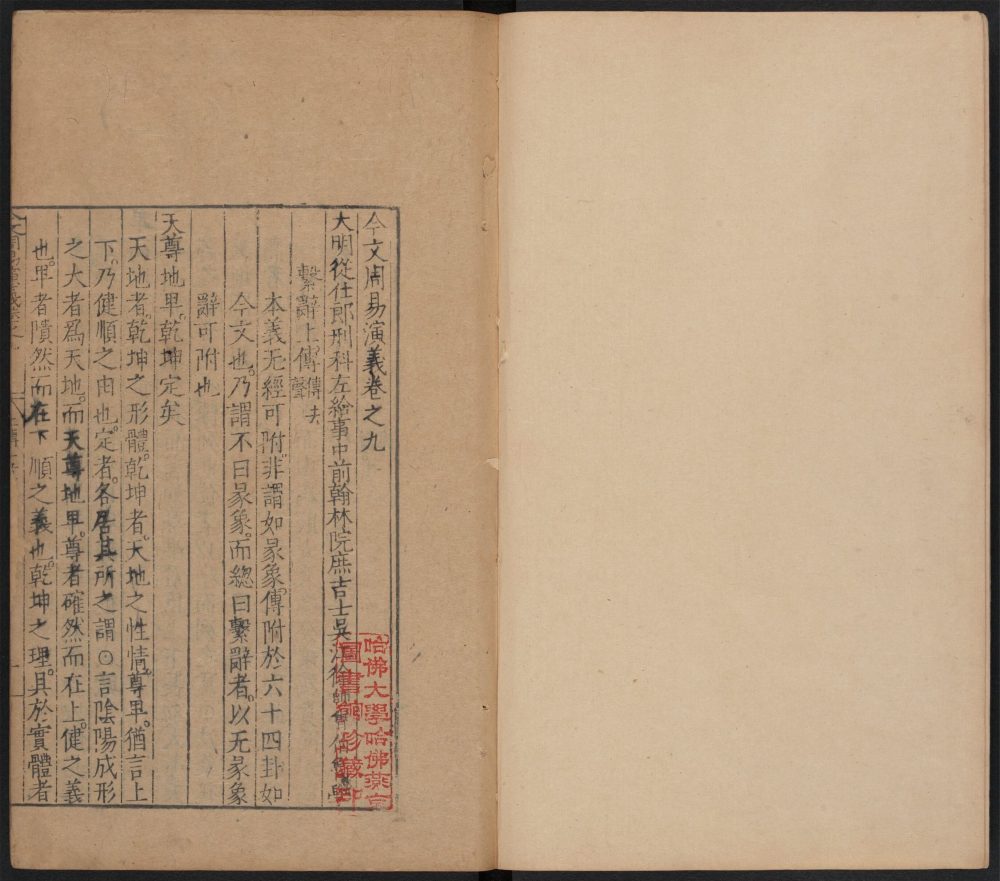 今文周易演義卷之九
大明從仕郎刑科左給事中前翰林院庶吉士吳江徐師曾伯魯
繫辭上傳傳去聲
本義无經可附非謂如彖象傳附於六十四卦如
今文也乃謂不曰彖象而總曰繫辭者以无彖象
辭可附也
天尊地卑乾坤定矣
天地者乾坤之形體乾坤者天地之性情尊卑猶言上
下乃健順之由也定者各居其所之謂○言陰陽成形
之大者爲天地而天尊地卑尊者確然而在上健之義
也卑者隤然而在下順之義也乾坤之理具於實體者
哈佛大學哈佛燕京
圖書館珍藏印